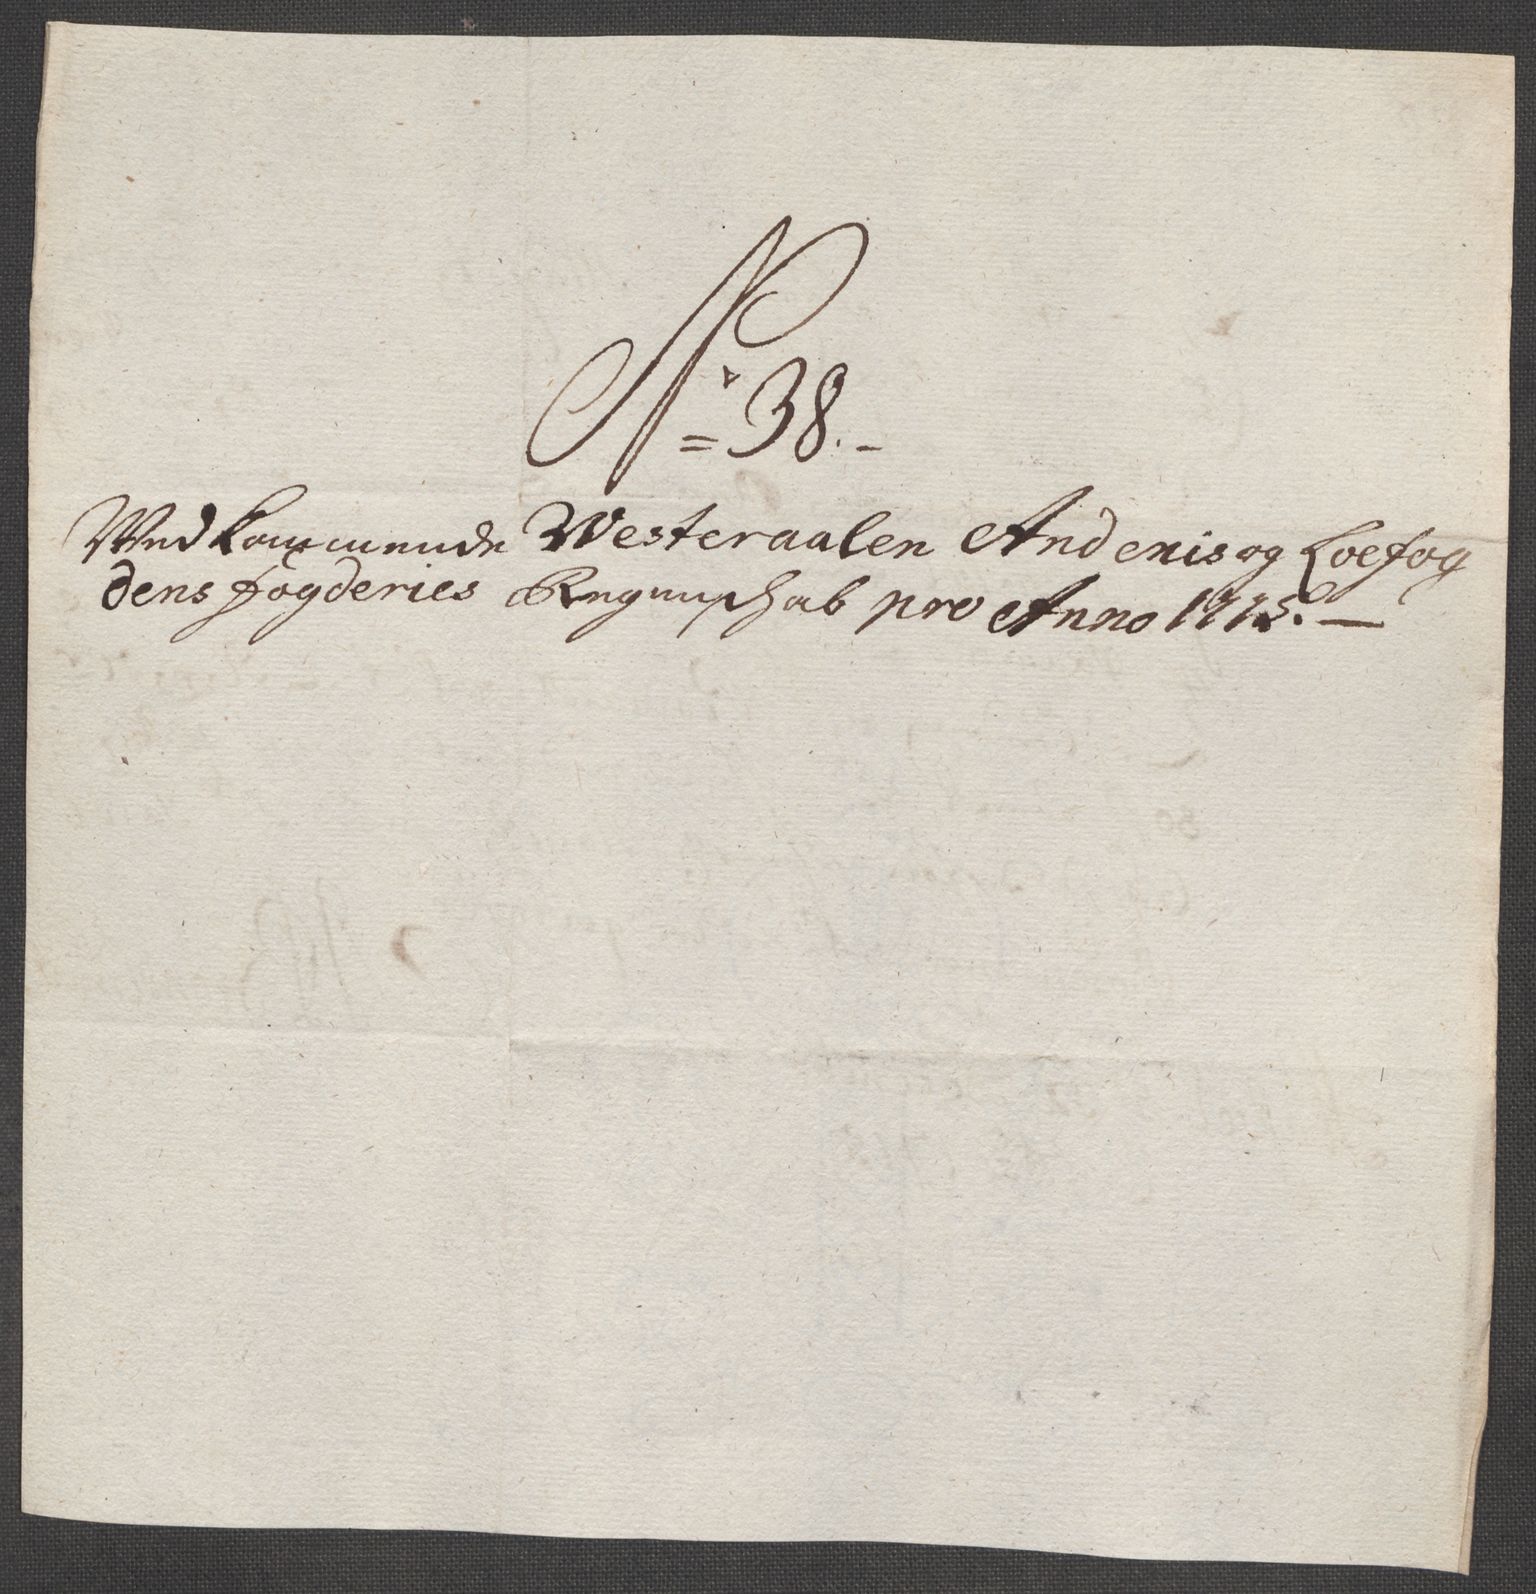 No 38.
Wedkommende Westeraalen Andenis og Loefog
dens fogderies Regnschab pro Anno 1715.